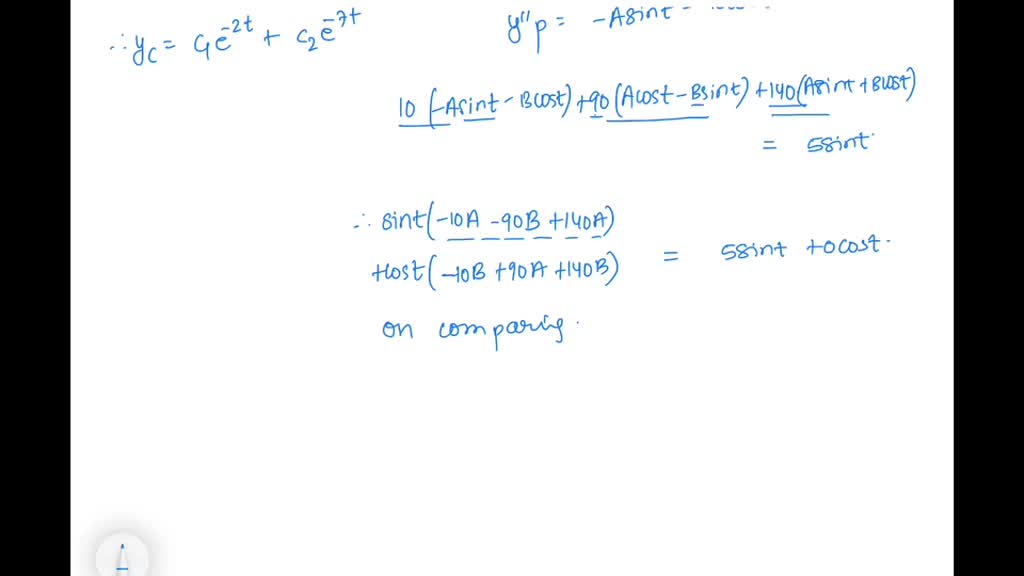 ∴ yc = c₁e^-2t + c₂e^-7t
y''p = -Asint -
10 (-Asint - Bcost) + 90 (Acost - Bsint) + 140 (Asint + Bcost)
= 5sint
∴ sint (-10A - 90B + 140A)
+cost (-10B + 90A + 140B) = 5sint + 0cost.
on comparing.